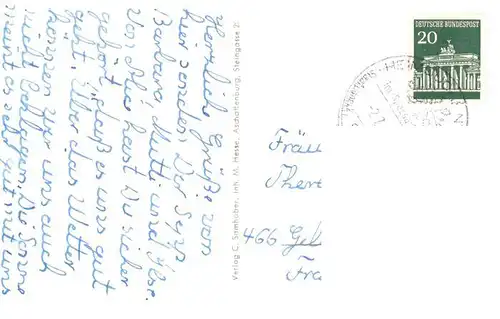 Herzliche Grüße von
hier senden Dir Sepp
Barbara, Mutti und Ilse.
Von Mutti hast Du sicher
gehört, daß es uns gut
geht. Über das Wetter
können wir uns auch
nicht beklagen. Die Sonne
meint es sehr gut mit uns
Verlag C. Samhaber, Inh. M. Hesse, Aschaffenburg, Steingasse 2
DEUTSCHE BUNDESPOST
20
Fräu
466 Gel
Fra